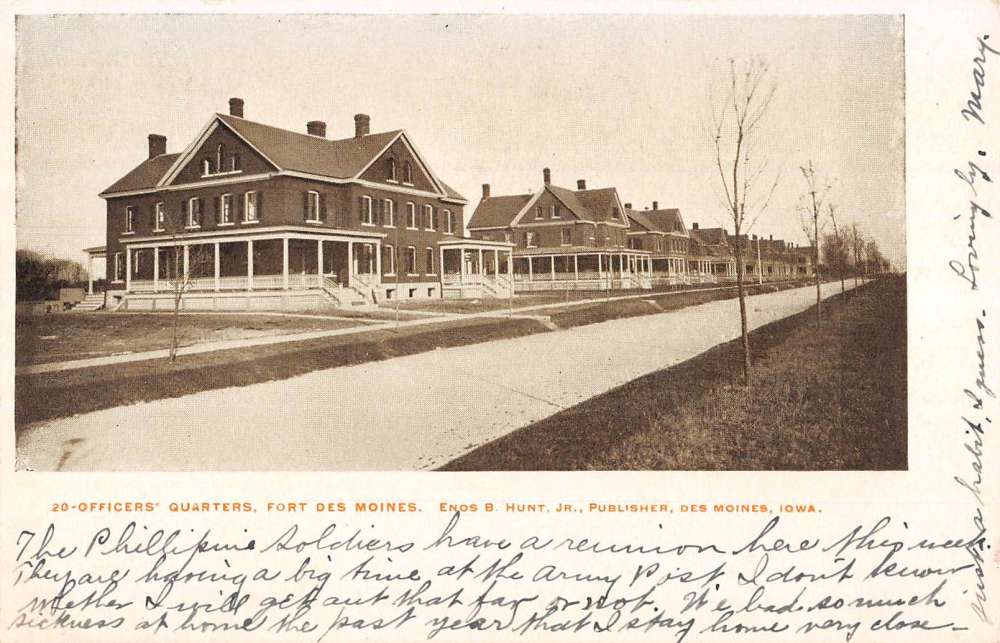 20-OFFICERS' QUARTERS, FORT DES MOINES. ENOS B. HUNT, JR., PUBLISHER, DES MOINES, IOWA.
The Phillipine Soldiers have a reunion here this week
They are having a big time at the Army Post. I don't know
whether I will get out that far or not. We had so much
sickness at home the past year that I stay home very close-
just a habit, I guess. Loving by. Mary.